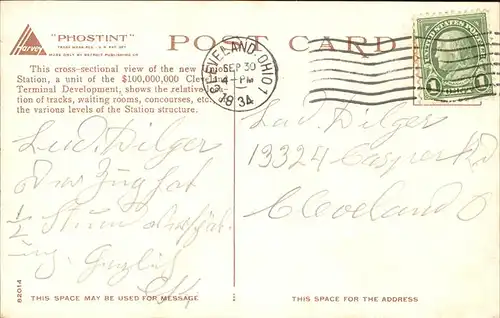 "PHOSTINT"
TRADE MARK-REG. U.S. PAT. OFF.
MADE ONLY BY DETROIT PUBLISHING CO.
Harvey
POST CARD
This cross-sectional view of the new Union
Station, a unit of the $100,000,000 Cleveland
Terminal Development, shows the relative
tion of tracks, waiting rooms, concourses, etc.
the various levels of the Station structure.
CLEVELAND, OHIO 1
SEP 30
4-PM
1934
UNITED STATES POSTAGE
1 1
Lud. Dilger
Der Zug hat
1/2 Stun
ung.
Lud. Dilger
13324 Casper Rd
Cleveland O
82014
THIS SPACE MAY BE USED FOR MESSAGE
THIS SPACE IS FOR THE ADDRESS